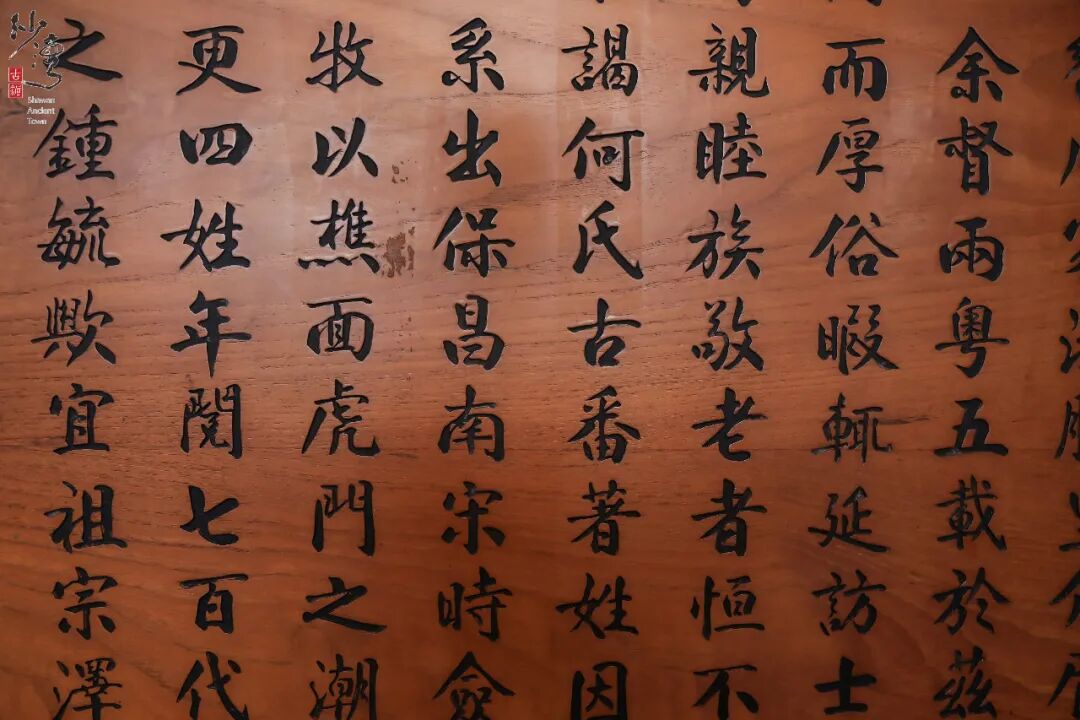 余督兩粵五載於茲
而厚俗暇輒延訪士
親睦族敬老者恒不
謁何氏古番著姓因
系出保昌南宋時僉
牧以樵面虎門之潮
更四姓年閱七百代
之鍾毓歟宜祖宗澤
沙灣
古鎮
Shawan
Ancient
Town